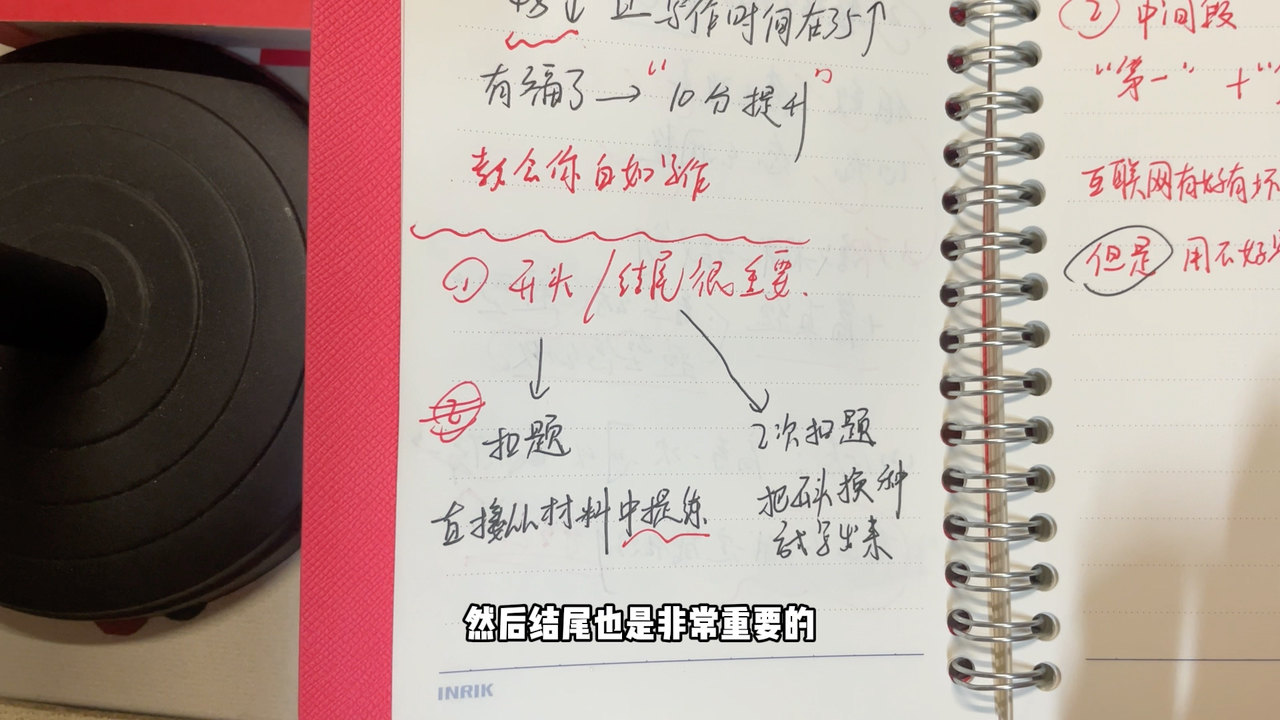 48↓ 且写作时间在35↑
有福了→“10分提升”
教会你自如写作
① 开头/结尾很重要.
扣题
2次扣题
直接从材料中提练
把开头换种
话写出来
然后结尾也是非常重要的
INRIK
② 中间段
“第一”+“
互联网有好有坏
但是 用不好